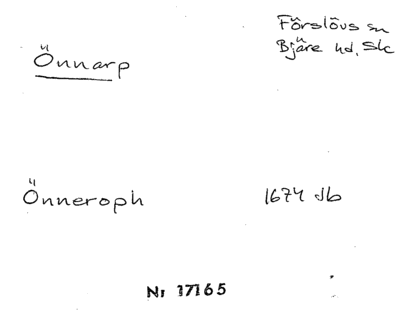 Förslövs sn
Önnarp
Bjäre hd. Sk
Önneroph
1674 Jb
Nr 17165